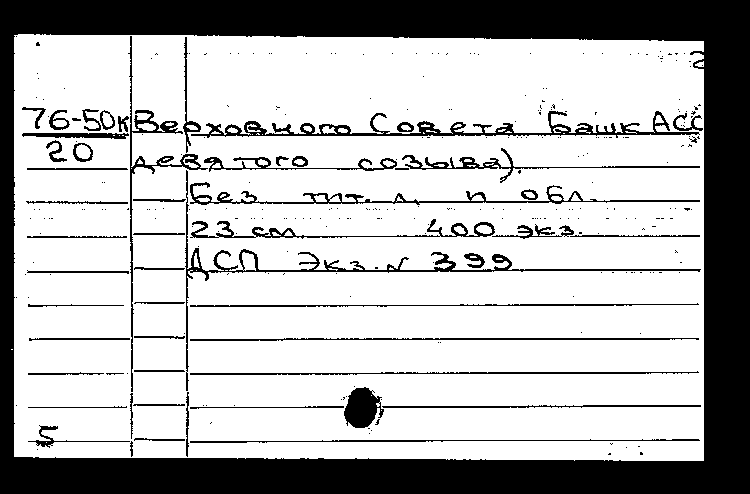 2
76-50к Верховного Совета Башк АСС
20 девятого созыва).
Без тит. л. и обл.
23 см 400 экз.
ДСП Экз. N 399
5